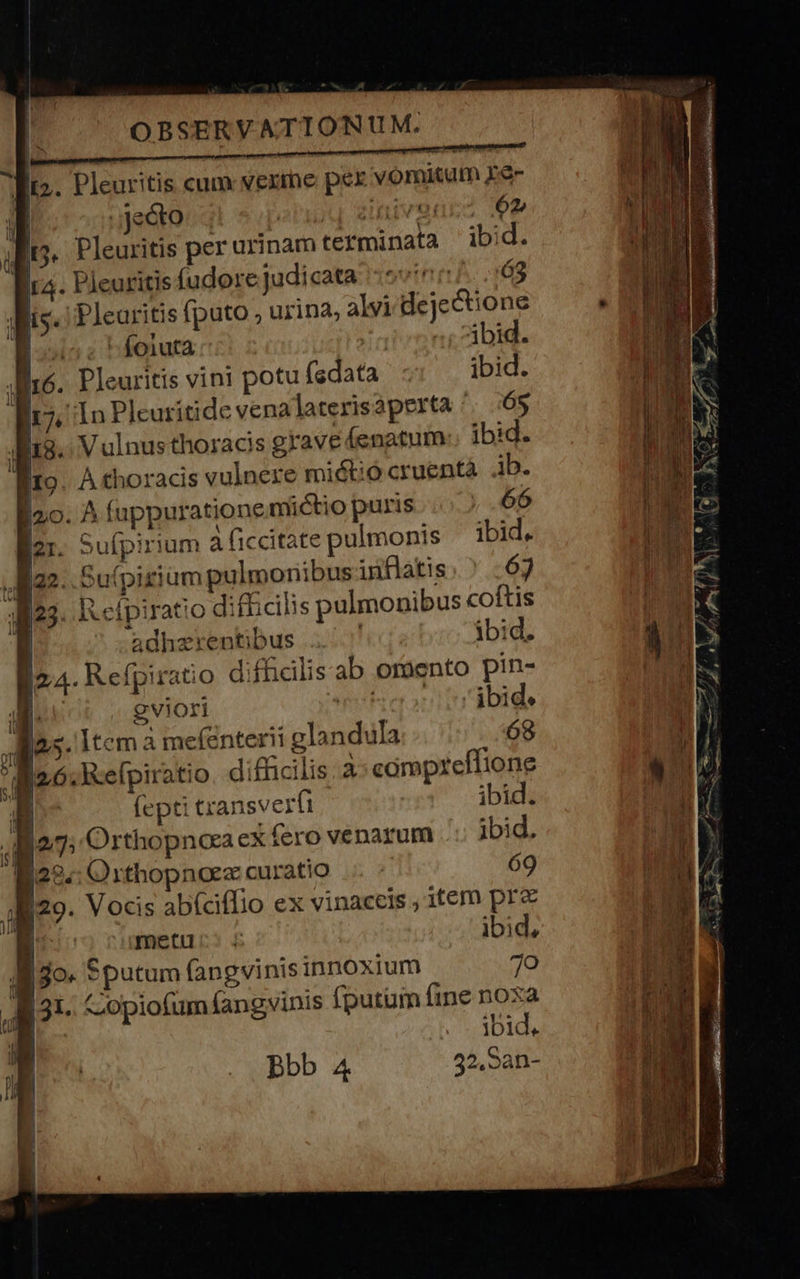 OBSERVATIONUM.
12. Pleuritis cum verme per vomitum re-
jecto 62
13. Pleuritis per urinam terminata ibid.
14. Pleuritis ſudore judicata 63
15. Pleuritis ſputo, urina, alvi dejectione
ſoluta ibid.
16. Pleuritis vini potu ſedata ibid.
17. In Pleuritide vena lateris aperta 65
18. Vulnus thoracis grave ſenatum. ibid.
19. A thoracis vulnere mictio cruenta ib.
20. A ſuppuratione mictio puris 66
21. Suſpirium à ſiccitate pulmonis ibid.
22. Suſpirium pulmonibus inflatis. 67
23. Reſpiratio difficilis pulmonibus coſtis
adhærentibus ibid.
24. Reſpiratio difficilis ab omento pin-
gviori ibid.
25. Item à meſenterii glandula. 68
26. Reſpiratio difficilis à compreſſione
ſepti transverſi ibid.
27. Orthopnœa ex ſero venarum ibid.
28. Orthopnœæ curatio 69
29. Vocis abſciſſio ex vinaceis, item præ
metu ibid.
30. Sputum ſangvinis innoxium 70
31. Copioſum ſangvinis ſputum ſine noxa
ibid.
Bbb 4 32. San-